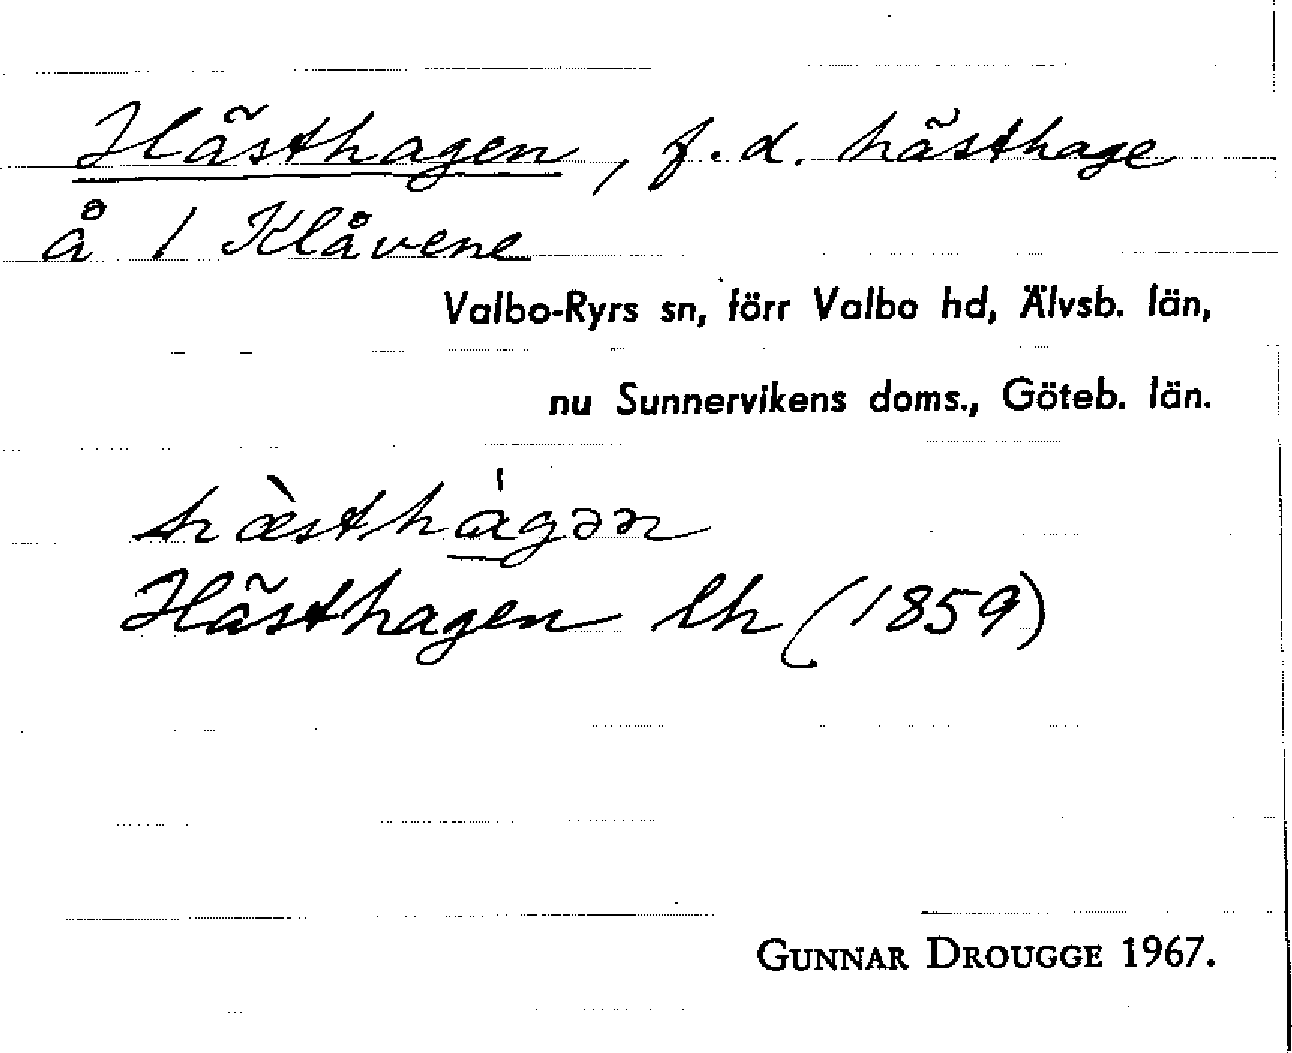 Hästhagen, f.d. hästhage
å 1 Klåvene
Valbo-Ryrs sn, förr Valbo hd, Älvsb. län,
nu Sunnervikens doms., Göteb. län.
hæ̀sthágən
Hästhagen lh (1859)
GUNNAR DROUGGE 1967.